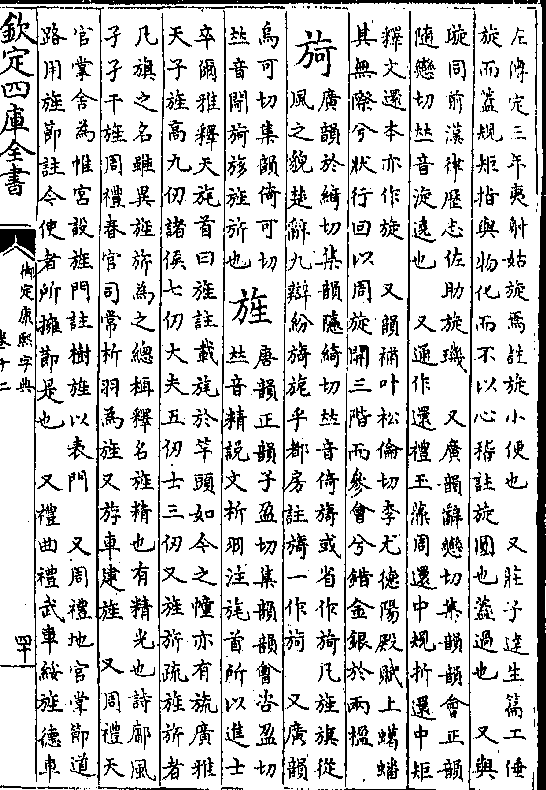 左傳定三年夷射姑旋焉註旋小便也　又莊子達生篇工倕
旋而蓋規矩指與物化而不以心稽註旋圓也蓋過也　又與
璇同前漢律歷志佐助旋璣　又廣韻辭戀切集韻韻會正韻
隨戀切𠀤音淀遶也　又通作還禮玉藻周還中規折還中矩
釋文還本亦作旋　又韻補叶松倫切李尤德陽殿賦上蟠蟠
其無際兮狀紆回以周旋開三階而參會兮錯金銀於兩楹
旑
廣韻於綺切集韻隱綺切𠀤音倚旖或省作旑凡旌旗從
風之貌楚辭九辯紛旖旎乎都房註旖一作旑　又廣韻
烏可切集韻倚可切
𠀤音閜旑旖旌旂也
旌
唐韻正韻子盈切集韻韻會咨盈切
𠀤音精說文析羽注旄首所以進士
卒爾雅釋天旄首曰旌註載旄於竿頭如今之幢亦有旒廣雅
天子旌高九仞諸侯七仞大夫五仞士三仞又旌旂疏旌旂者
凡旗之名雖異旌旂為之總稱釋名旌精也有精光也詩鄘風
孑孑干旌周禮春官司常析羽為旌又斿車建旌　又周禮天
官掌舍為帷宮設旌門註樹旌以表門　又周禮地官掌節道
路用旌節註今使者所擁節是也　又禮曲禮武車綏旌德車
欽定四庫全書
御定康熙字典
卷十二
四十